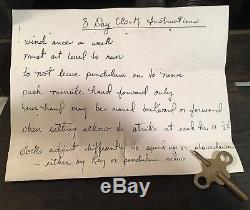 8 Day Clock Instructions
wind once a week
must set level to run
do not leave pendulum on to move
push minute hand forward only
hour hand may be moved backward or forward
when setting allow to strike at each hr or ½
clocks adjust differently to speed up or slow down
- either by key or pendulum screw